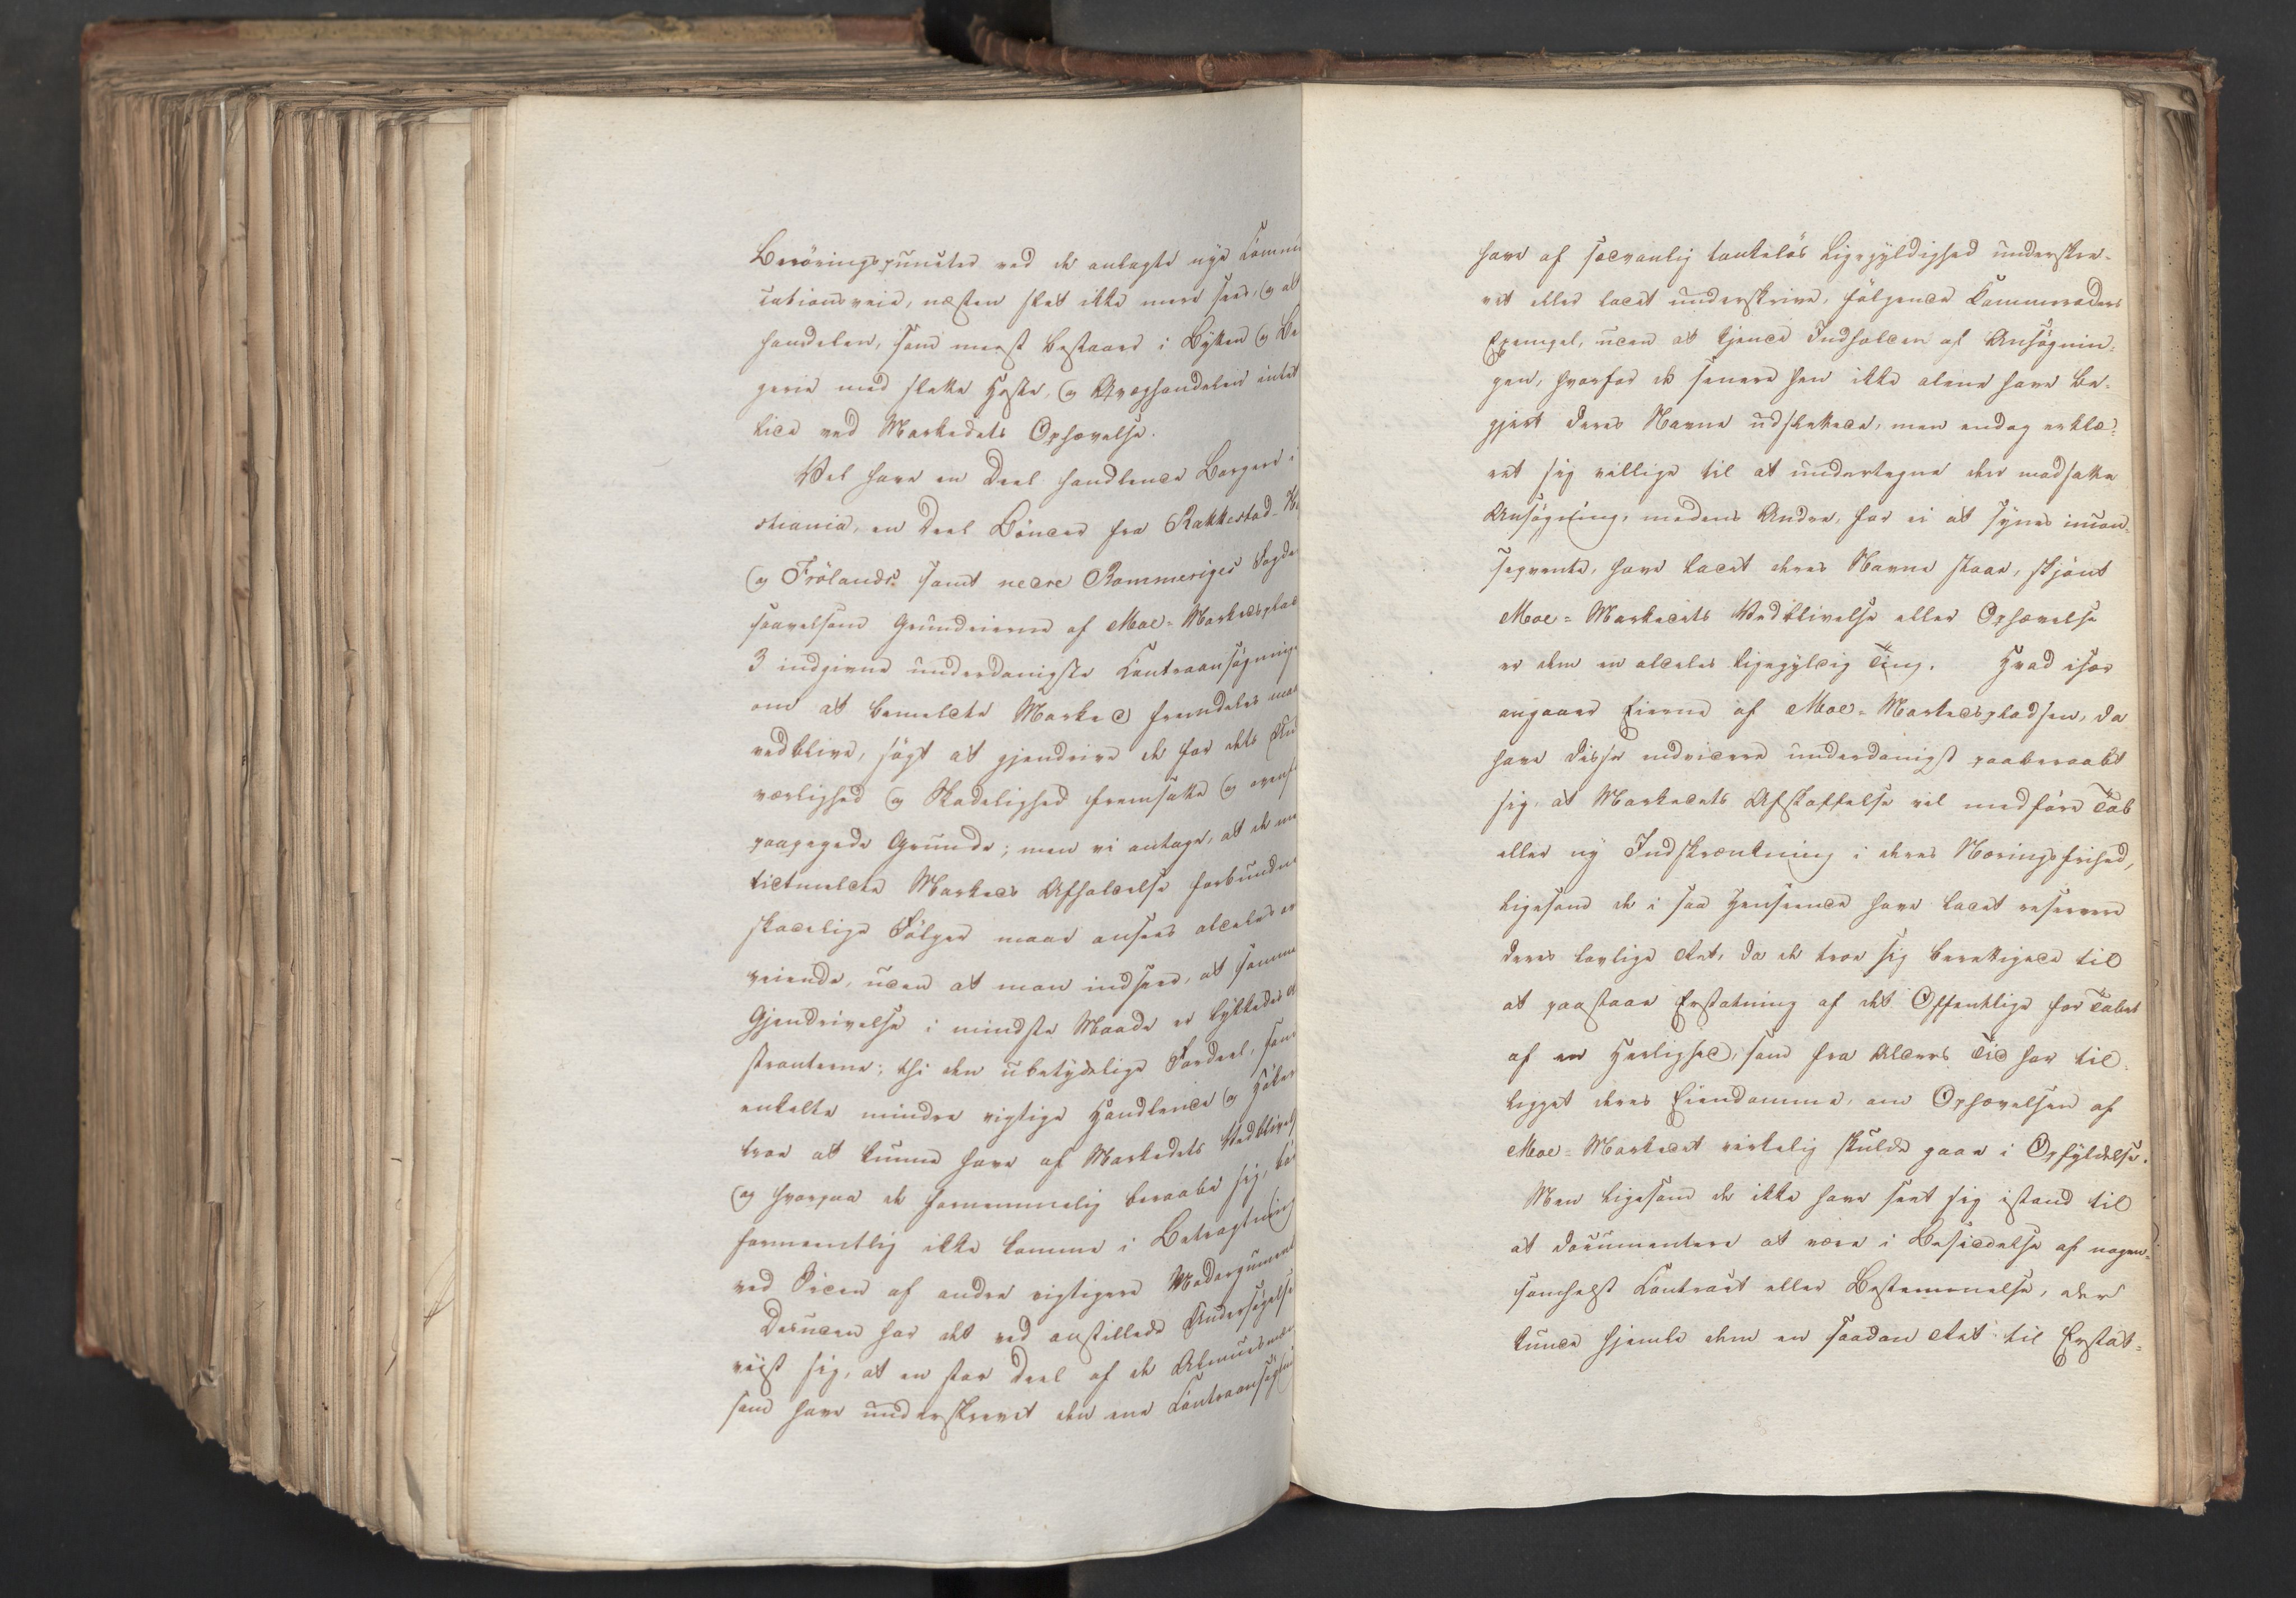 Berøringspuncter ved de anlagte nye Commu
cationsveie, næsten slet ikke mere sees, og at
handelen, som meest bestaaer i Bytten og Be
gerie med slette Heste, og Qvæghandelen intet
lide ved Markedets Ophævelse.
Vel have en Deel handlende Borgere i
stiania, en Deel Bönder fra Rakkestad-
og Frölands samt nedre Rommeriges Fogde
saavelsom Grundeierne af Moe-Markedsplad
3 indgivne underdanigste Contraansøgninge
om at bemeldte Marked fremdeles maa
vedblive, søgt at gjendrive de for dets
værlighed og Skadelighed fremsatte og
paapegede Grunde; men vi antage, at de me
tidtmeldte Markeds Afholdelse forbundne
skadelige Følger maae ansees aldeles
veiende, uden at man indseer, at samme
Gjendrivelse i mindste Maade er lykkedes
stranterne; thi den ubetydelige Fordeel, som
enkelte mindre vigtige Handlende og Høker
troe at kunne have af Markedets Vedblivels
og hvorpaa de fornemmelig beraabe sig, bø
formeentlig ikke komme i Betragtning
ved Siden af andre vigtigere Modargument
Desuden har det ved anstillede Undersøgelse
viist sig, at en stor Deel af de Almuesmæn
som have underskrevet den ene Contraansøgni
have af sædvanlig tankeløs Ligegyldighed underskre-
vet eller ladet underskrive, følgende Kammeraders
Exempel, uden at kjende Indholdet af Ansøgnin-
gen, hvorfor de senere hen ikke alene have be-
gjert deres Navne udslettede, men endog erklæ-
ret sig villige til at undertegne den modsatte
Ansøgning, medens Andre, for ei at synes incon-
seqvente, have ladet deres Navne staae, skjönt
Moe-Markedets Vedblivelse eller Ophævelse
er dem en aldeles ligegyldig Ting. Hvad især
angaaer Eierne af Moe-Markedspladsen, da
have disse endvidere underdanigst paaberaabt
sig, at Markedets Afskaffelse vil medføre Tab
eller ny Indskrænkning i deres Næringsfrihed,
ligesom de i saa Henseende have ladet reservere
deres lovlige Ret, da de troe sig berettigede til
at paastaae Erstatning af det Offentlige for Tabet
af en Herlighed, som fra Alders Tid har til-
ligget deres Eiendomme, om Ophævelsen af
Moe-Markedet virkelig skulde gaae i Opfyldelse.
Men ligesom de ikke have seet sig istand til
at documentere at være i Besiddelse af nogen-
somhelst Contract eller Bestemmelse, der
kunde hjemle dem en saadan Ret til Erstat-